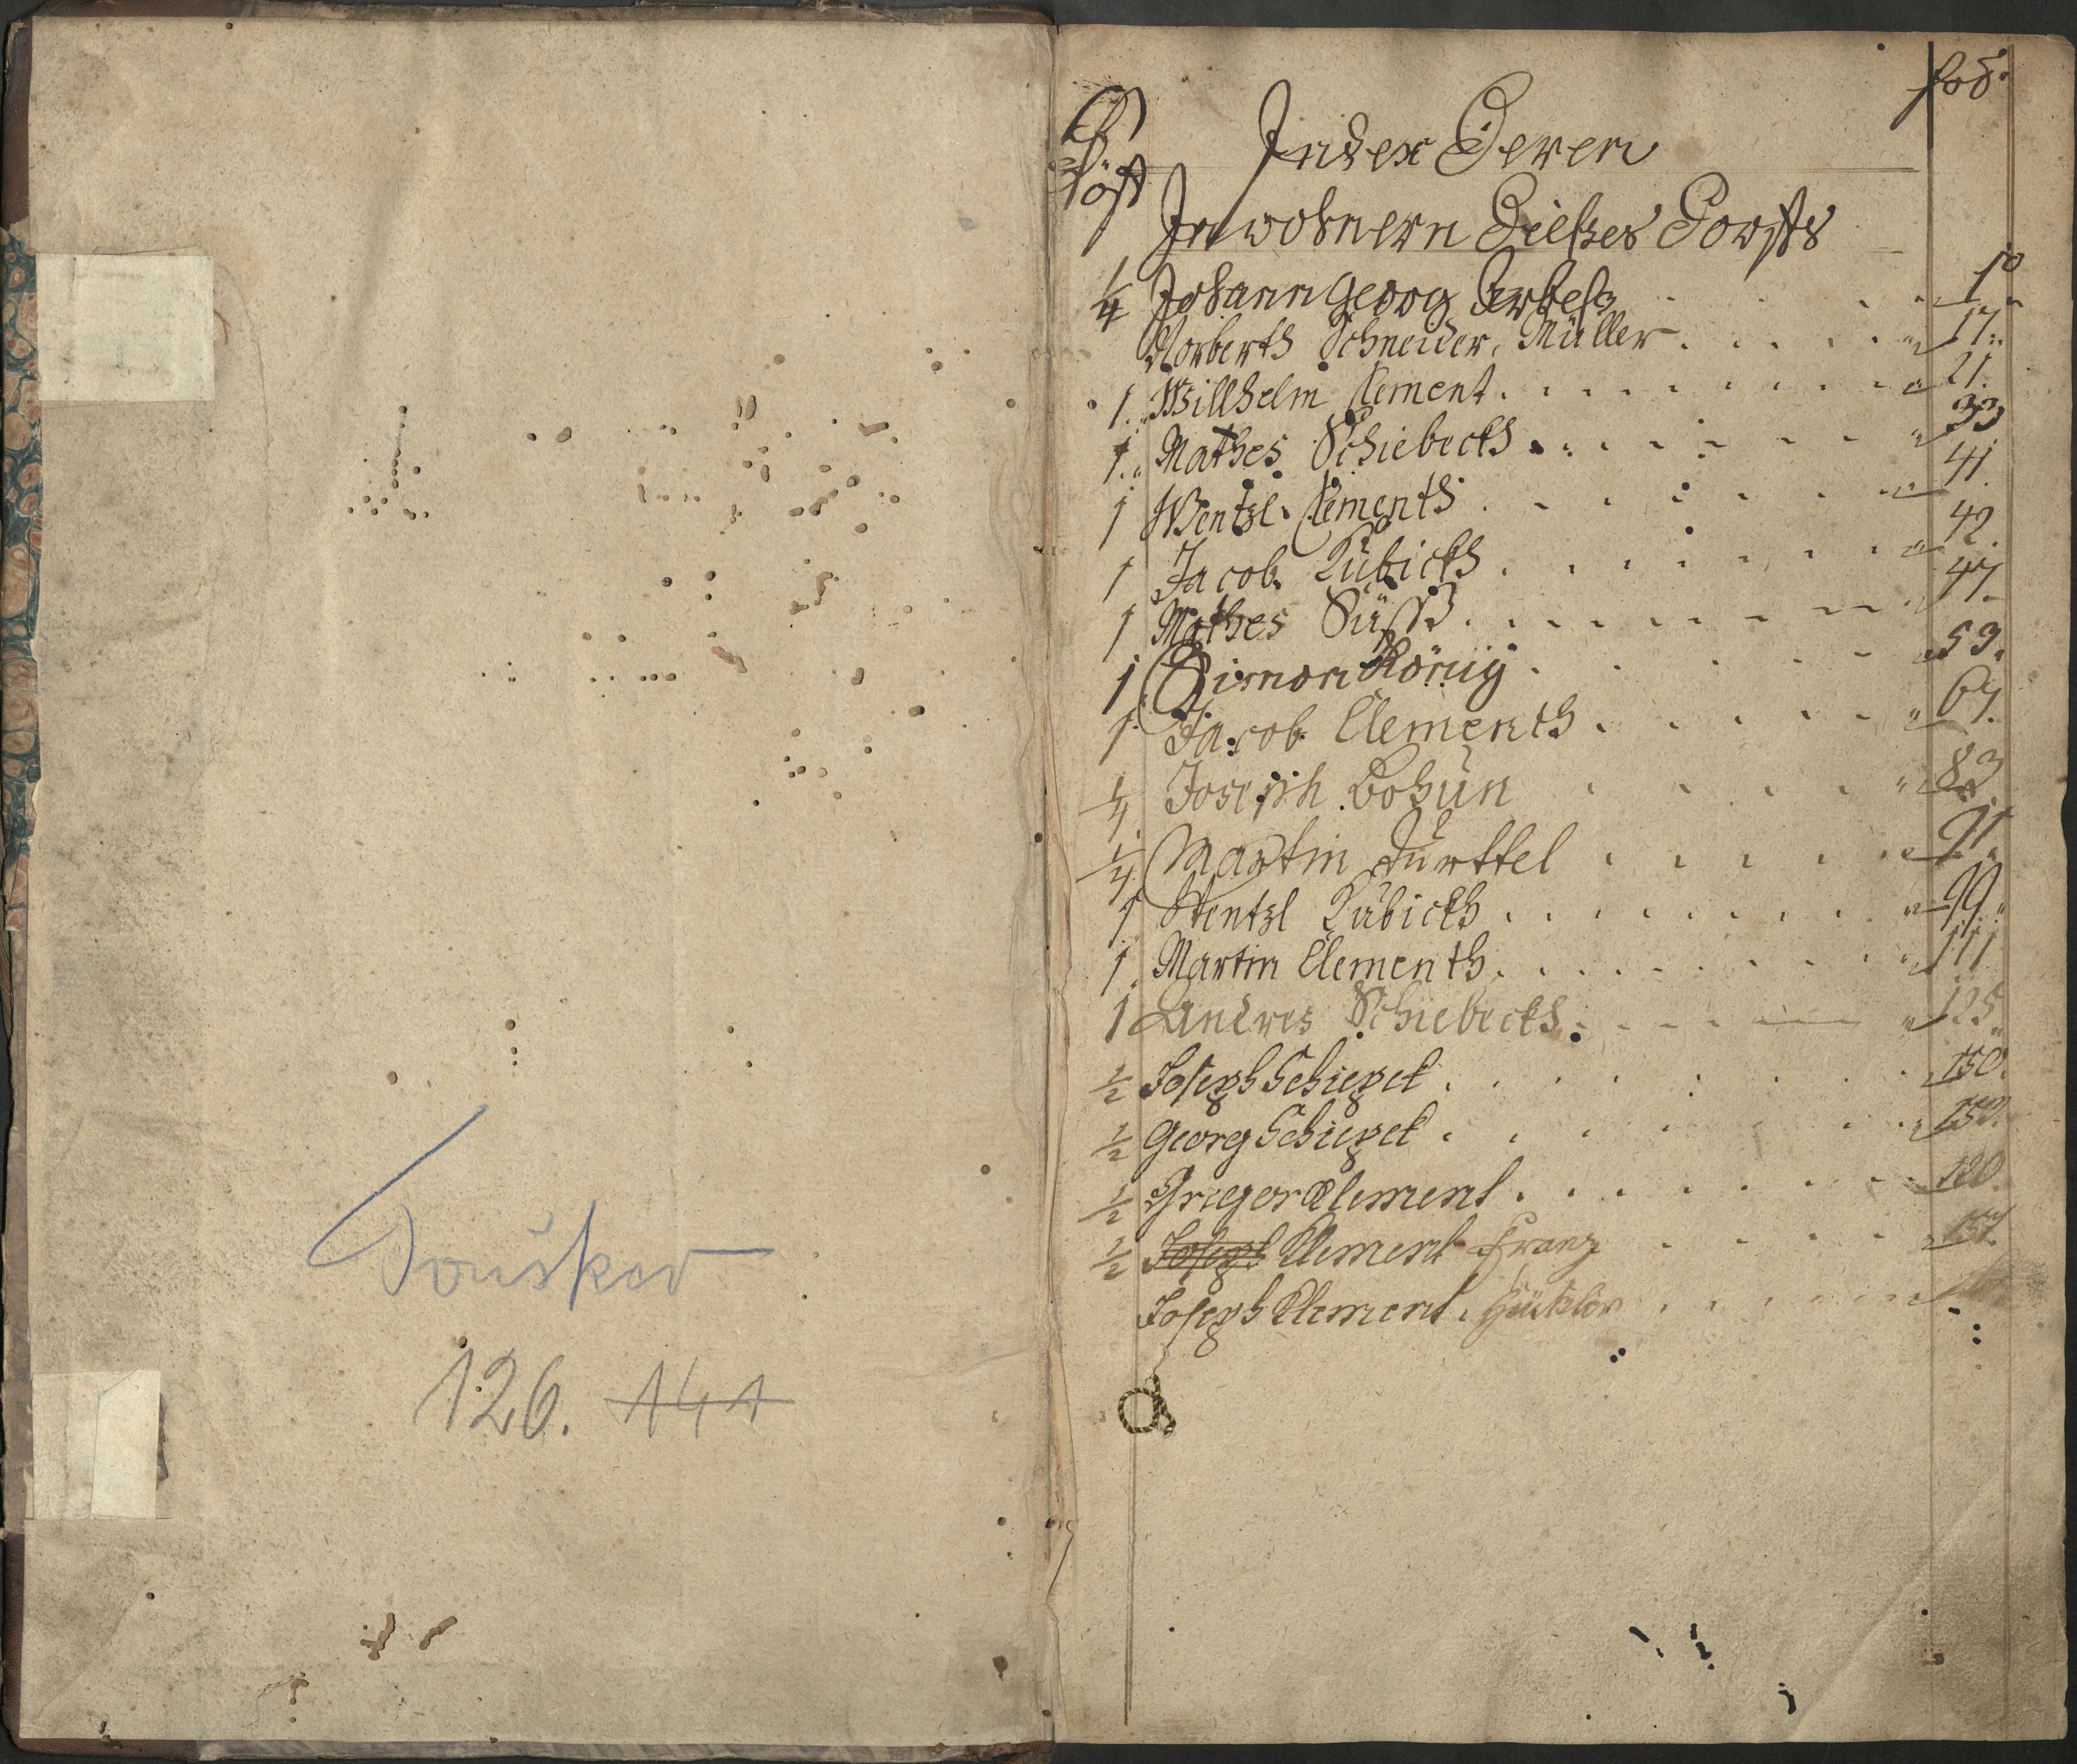 Touškov
126. 141
fol:
Höff
Index Deren
Inwohnern Dießes Dorffs
1/4 Johann Georg Erbeß . . . . 10
Norberth Schneider, Müller . . . . 17
1. Willhelm Clement . . . . 21.
1. Mathes Schiebeckh . . . . 33
1 Wentzl Clementh . . . . 41
1 Jacob Kubickh . . . . 42.
1 Mathes Süß . . . . 47.
1 Simon König . . . . 53.
1 Jacob Clementh . . . . 67.
1/4 Joseph Bohun . . . . 83
1/4 Martin Turttel . . . . 91
1 Wentzl Kubickh . . . . 99
1. Martin Clementh . . . . 111
1 Andres Schiebeckh . . . . 125
1/2 Joseph Schiepek . . . . 150.
1/2 Georg Schiepek . . . . 153.
1/2 Griegor Clement . . . . 120
1/2 Joseph Klement Franz . . . . 157
Joseph Klement, Häusler . . . .